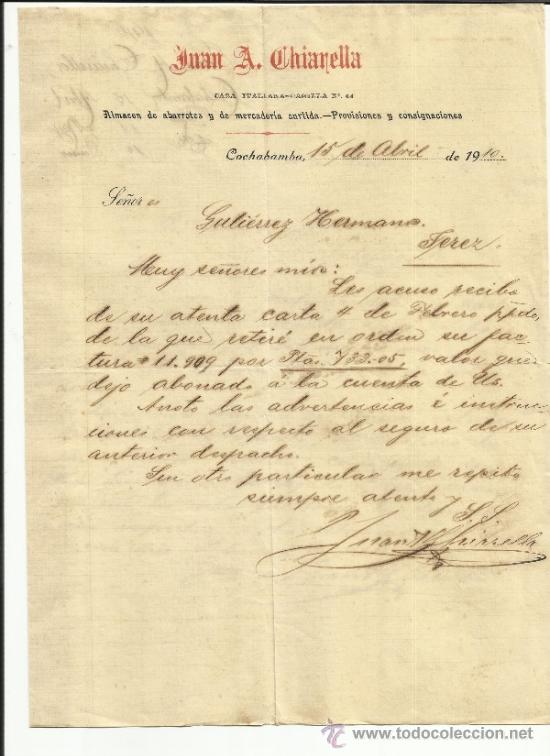 Juan A. Chiarella
CASA ITALIANA–CASILLA Nº. 44
Almacen de abarrotes y de mercadería surtida.—Provisiones y consignaciones
Cochabamba, 15 de Abril de 1910.
Señores
Gutiérrez Hermanos.
Jerez.
Muy señores mios:
Les acuso recibo
de su atenta carta 4 de Febrero ppdo,
de la que retiré en orden su fac-
tura # 11.909 por Pta. 733.05, valor que
dejo abonado á la cuenta de Us.
Anoto las advertencias é instruc-
ciones con respecto al seguro de su
anterior despacho.
Sin otro particular me repito
siempre atento y
S. S.
Juan A. Chiarella
todocoleccion
www.todocoleccion.net